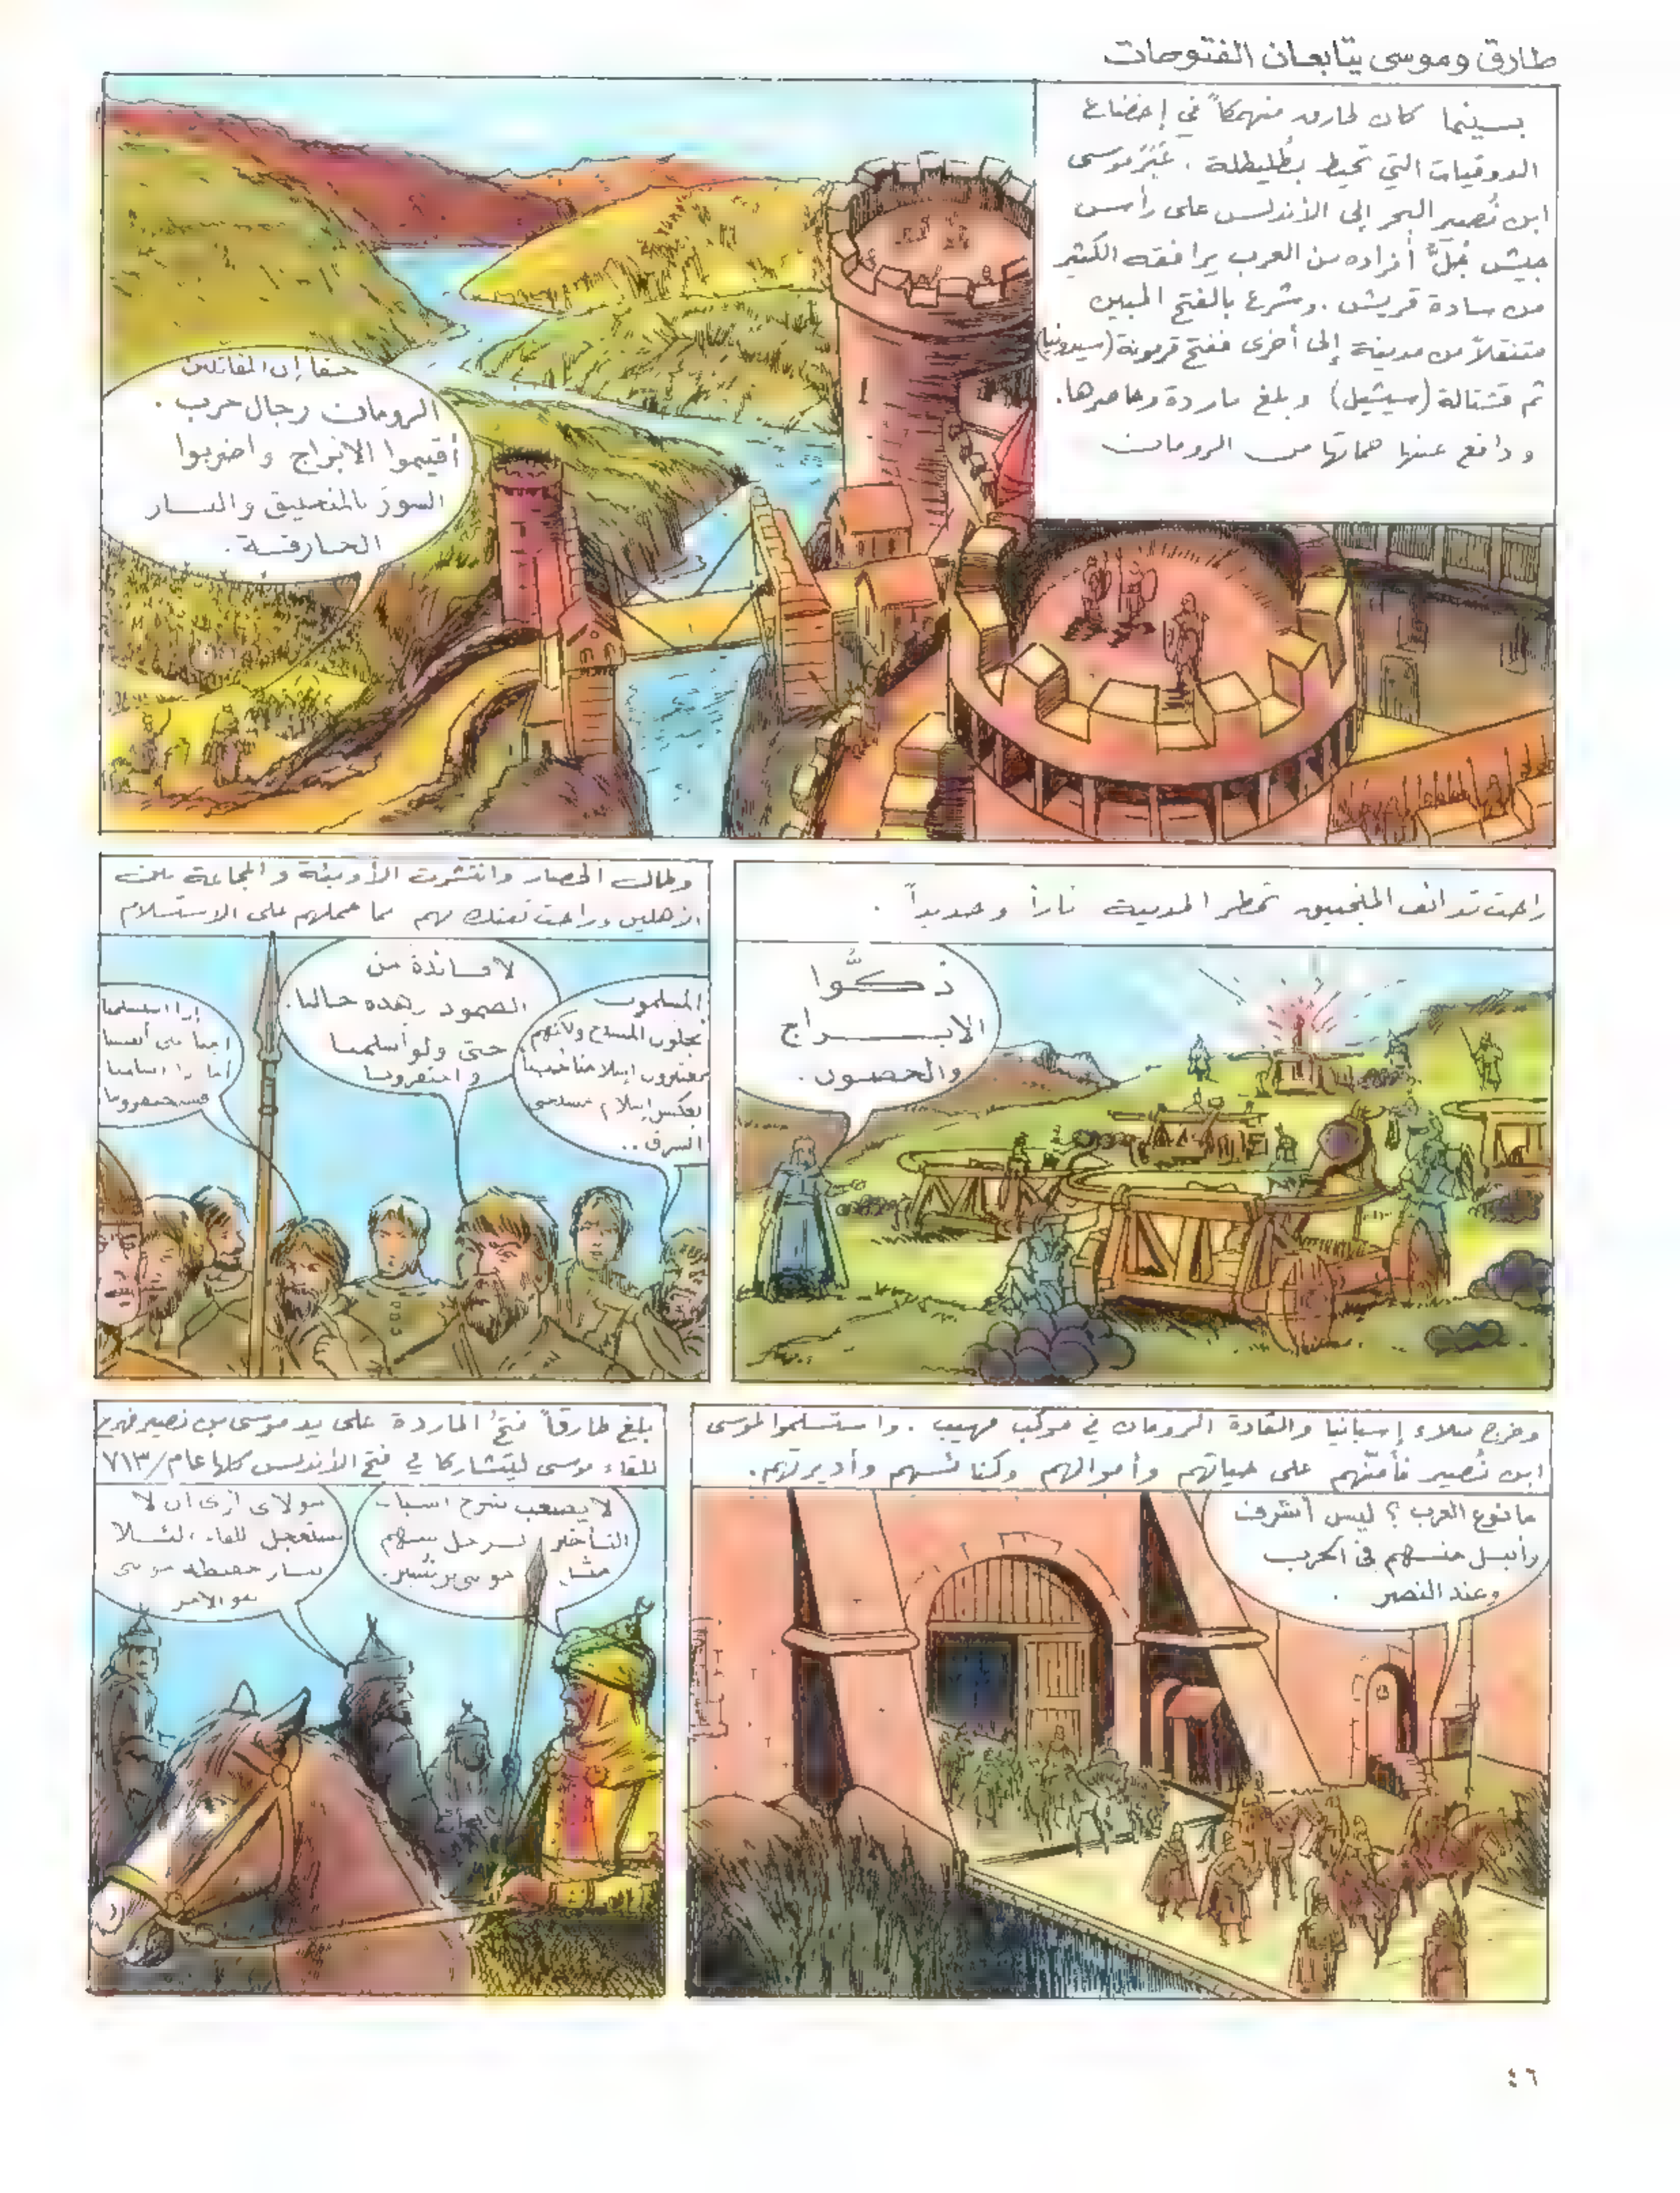 طارق وموسى يتابعان الفتوحات
بينما كان طارق منهمكاً في إخضاع
الدوقيات التي تحيط بطُليطلة . عَبَرَ موسى
ابن نُصير البحر إلى الأندلس على رأس
جيش جُلَّ أفراده من العرب يرافقه الكثير
من سادة قريش . وشرع بالفتح المبين
متنقلاً من مدينة إلى أخرى ففتح قرمونة (سيدونيا)
ثم قشتالة (سيڤيل) وبلغ ماردة وحاصرها .
ودافع عنها حماتها من الرومان
حقاً إن المقاتلين
الرومان رجال حرب .
أقيموا الابراج واضربوا
السور بالمنجنيق والنار
الحارقة .
راحت قذائف المنجنيق تمطر المدينة ناراً وحديداً .
دكّوا
الابراج
والحصون .
وطال الحصار وانتشرت الأوبئة والمجاعة بين
الأهلين وراحت تفتك بهم مما حملهم على الاستسلام
المسلمون
يجلون المسيح ولكنهم
يعتبرون إسلامنا
بعكس إسلام مسيحيي
الشرق ..
لا فائدة من
الصمود وهذه حالنا .
حتى ولو أسلمنا
واحتقرونا
إذا استسلمنا
أمنا على أنفسنا
أما إذا أسلمنا
فسيحتقروننا
وخرج نبلاء إسبانيا والقادة الرومان في موكب مهيب . واستسلموا لموسى
ابن نُصير فأمّنهم على حياتهم وأموالهم وكنائسهم وأديرتهم .
ما نوع العرب ؟ ليس أشرف
وأنبل منهم في الحرب
وعند النصر .
بلغ طارقاً فتحُ الماردة على يد موسى بن نصير فهرع
للقاء موسى ليتشاركا في فتح الأندلس كلها عام / ٧١٣
لا يصعب شرح اسباب
التأخر لرجل شهم
مثل موسى بن نصير .
مولاي أرى أن لا
نستعجل للقاء لئلا
موسى
هو الأمر
٤٦